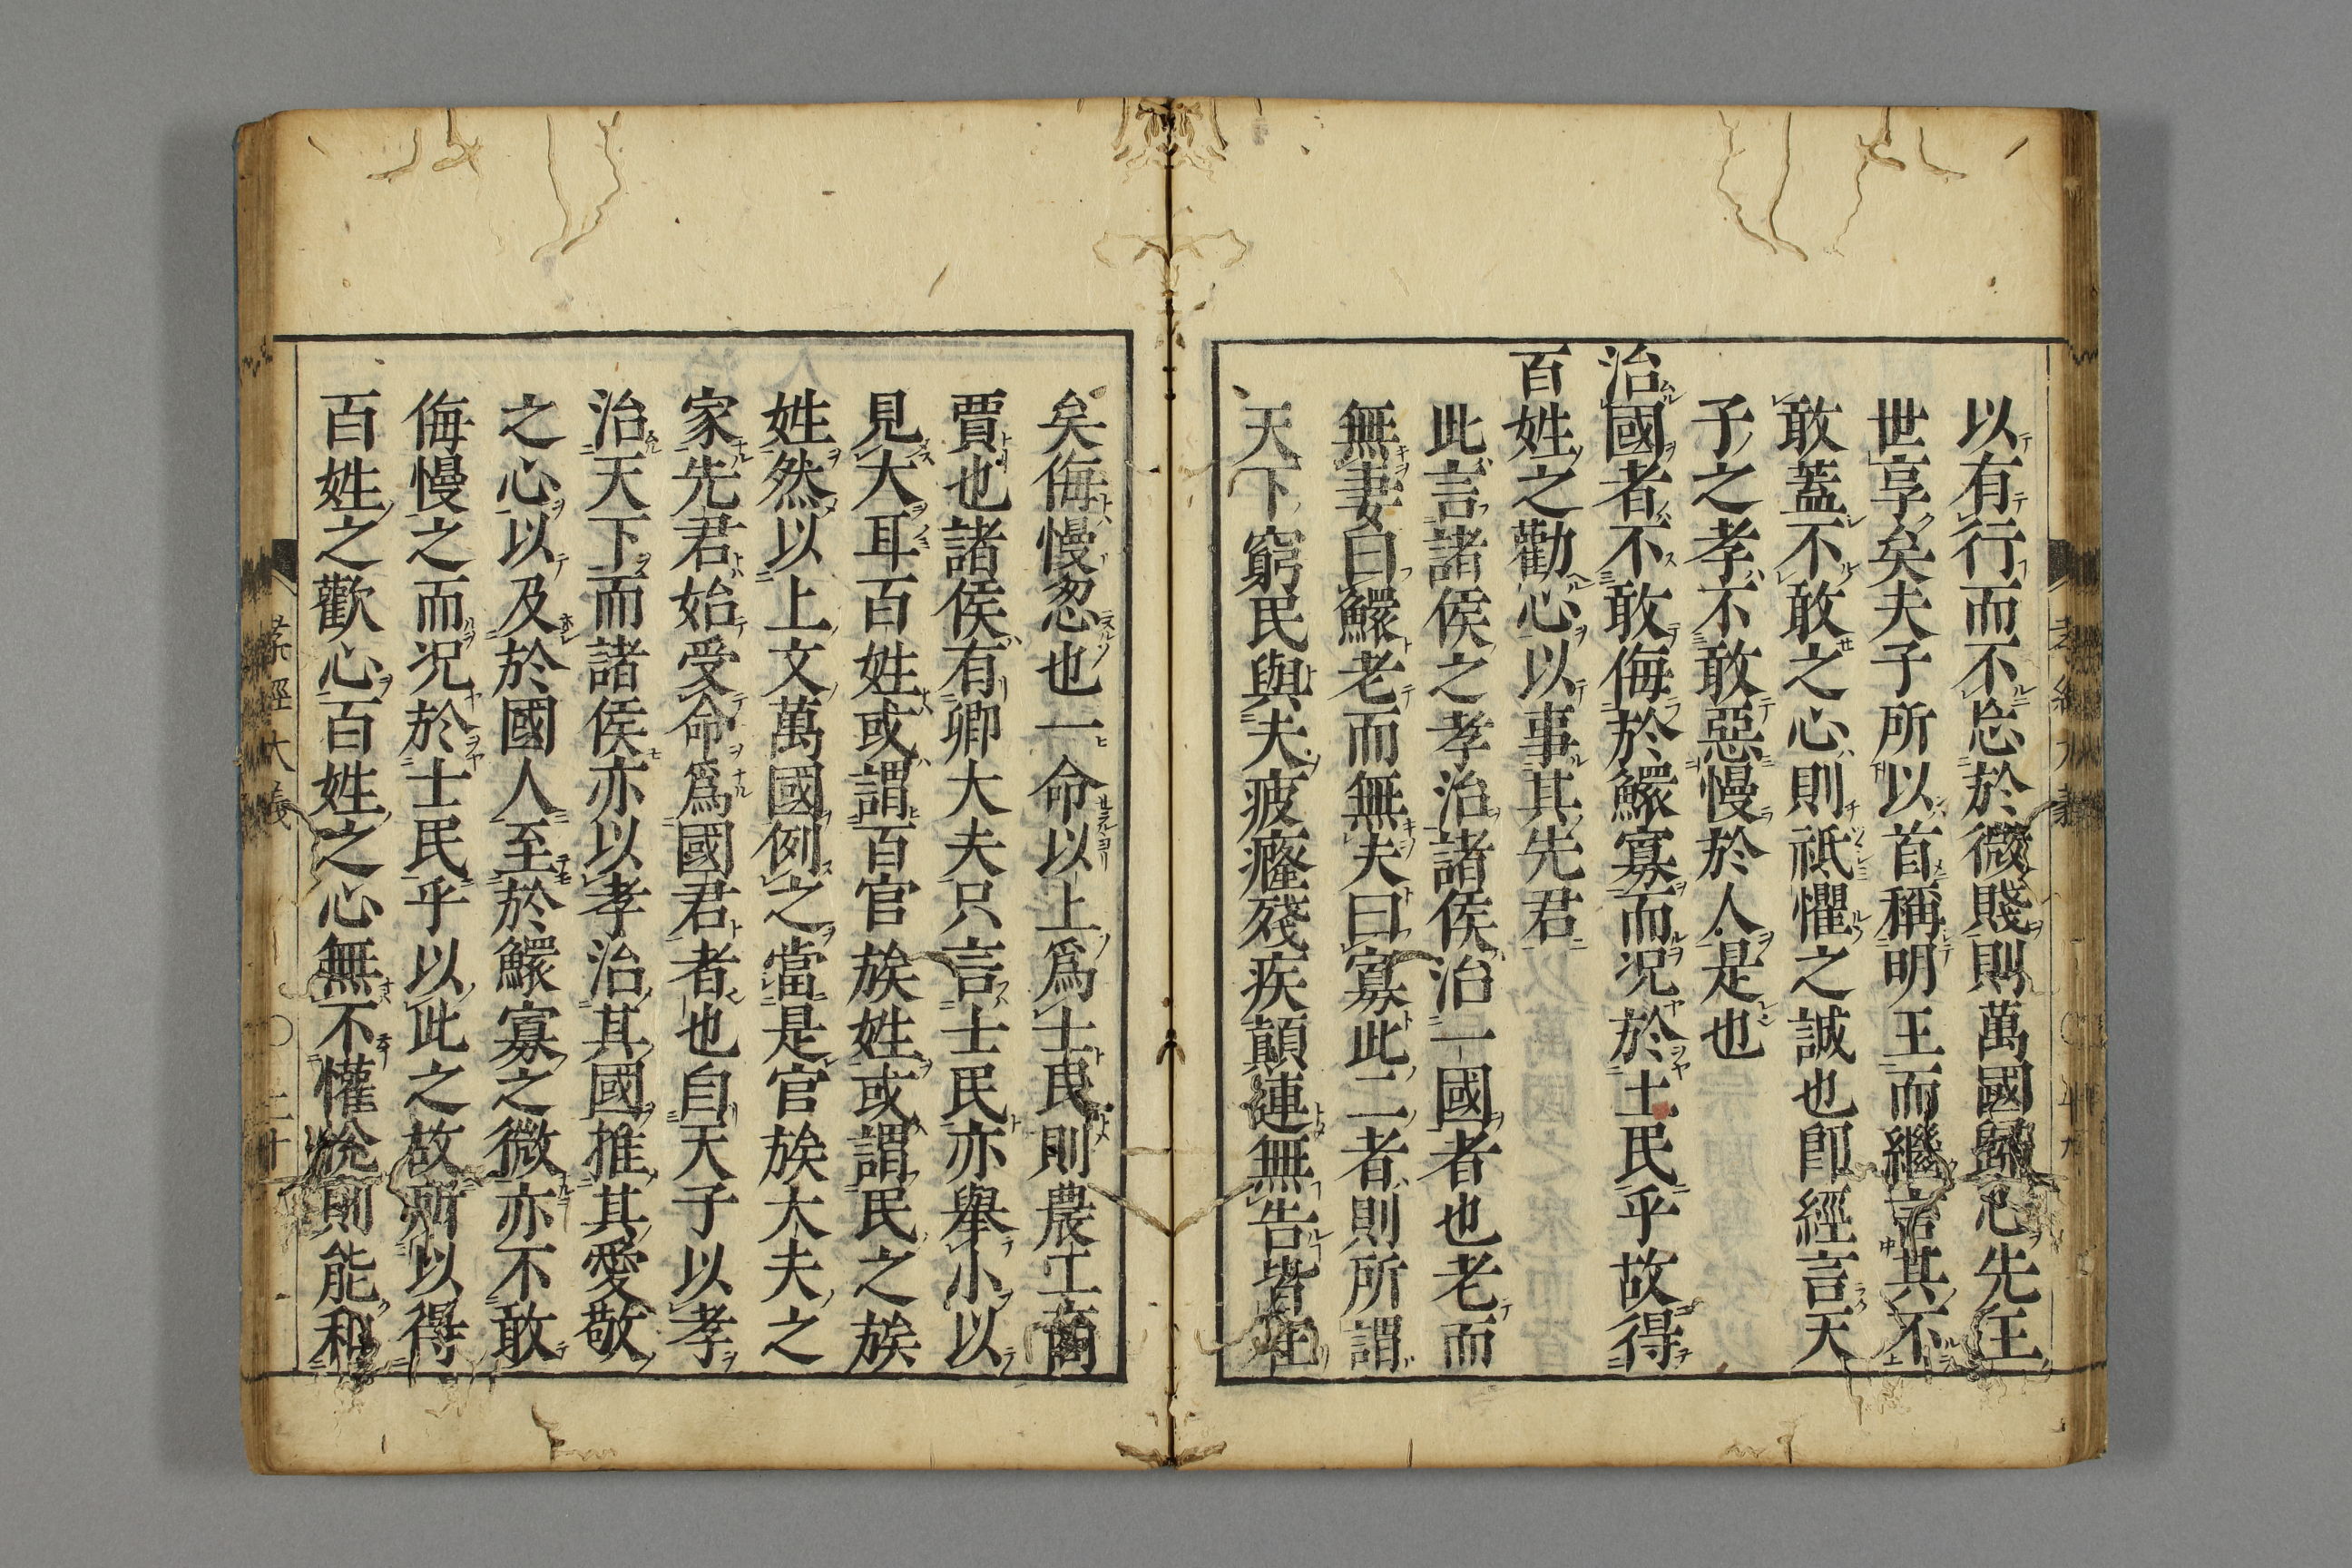 以有行而不忘於微賤則萬國歸心先王
世享矣夫子所以首稱明王而繼言其不
敢蓋不敢之心則祗懼之誠也卽經言天
子之孝不敢惡慢於人是也
治國者不敢侮於鰥寡而況於士民乎故得
百姓之勸心以事其先君
此言諸侯之孝治諸侯治一國者也老而
無妻曰鰥老而無夫曰寡此二者則所謂
天下窮民與夫疲癃殘疾顛連無告皆在
矣侮慢忽也一命以上爲士民則農工商
賈也諸侯有卿大夫只言士民亦舉小以
見大耳百姓或謂百官族姓或謂民之族
姓然以上文萬國例之當是官族大夫之
家先君始受命爲國君者也自天子以孝
治天下而諸侯亦以孝治其國推其愛敬
之心以及於國人至於鰥寡之微亦不敢
侮慢之而況於士民乎以此之故所以得
百姓之歡心百姓之心無不懽悅則能和